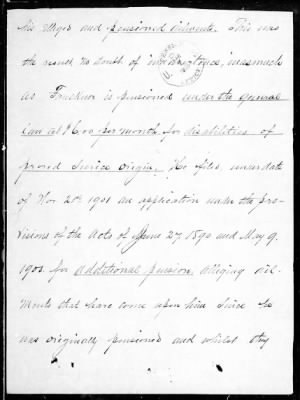 his alleged and pensioned ailments. This was
the result no doubt of inadvertence, inasmuch
as Faulkner is pensioned under the general
Law at $6.00 per month for disabilities of
proved service origin. He files under date
of Nov. 20th 1901 an application under the pro-
visions of the Acts of June 27, 1890 and May 9.
1900. for additional pension, alleging ail-
ments that have come upon him since he
was originally pensioned and whilst they